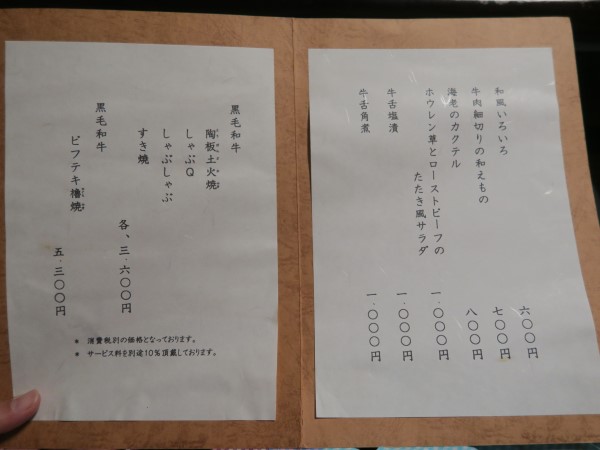 和風いろいろ 六〇〇円
牛肉細切りの和えもの 七〇〇円
海老のカクテル 八〇〇円
ホウレン草とローストビーフの
たたき風サラダ 一.〇〇〇円
牛舌塩漬 一.〇〇〇円
牛舌角煮 一.〇〇〇円
黒毛和牛
陶板土火焼
しゃぶQ
しゃぶしゃぶ
すき焼
各、三.六〇〇円
黒毛和牛
ビフテキ櫓焼
五.三〇〇円
* 消費税別の価格となっております。
* サービス料を別途10%頂戴しております。